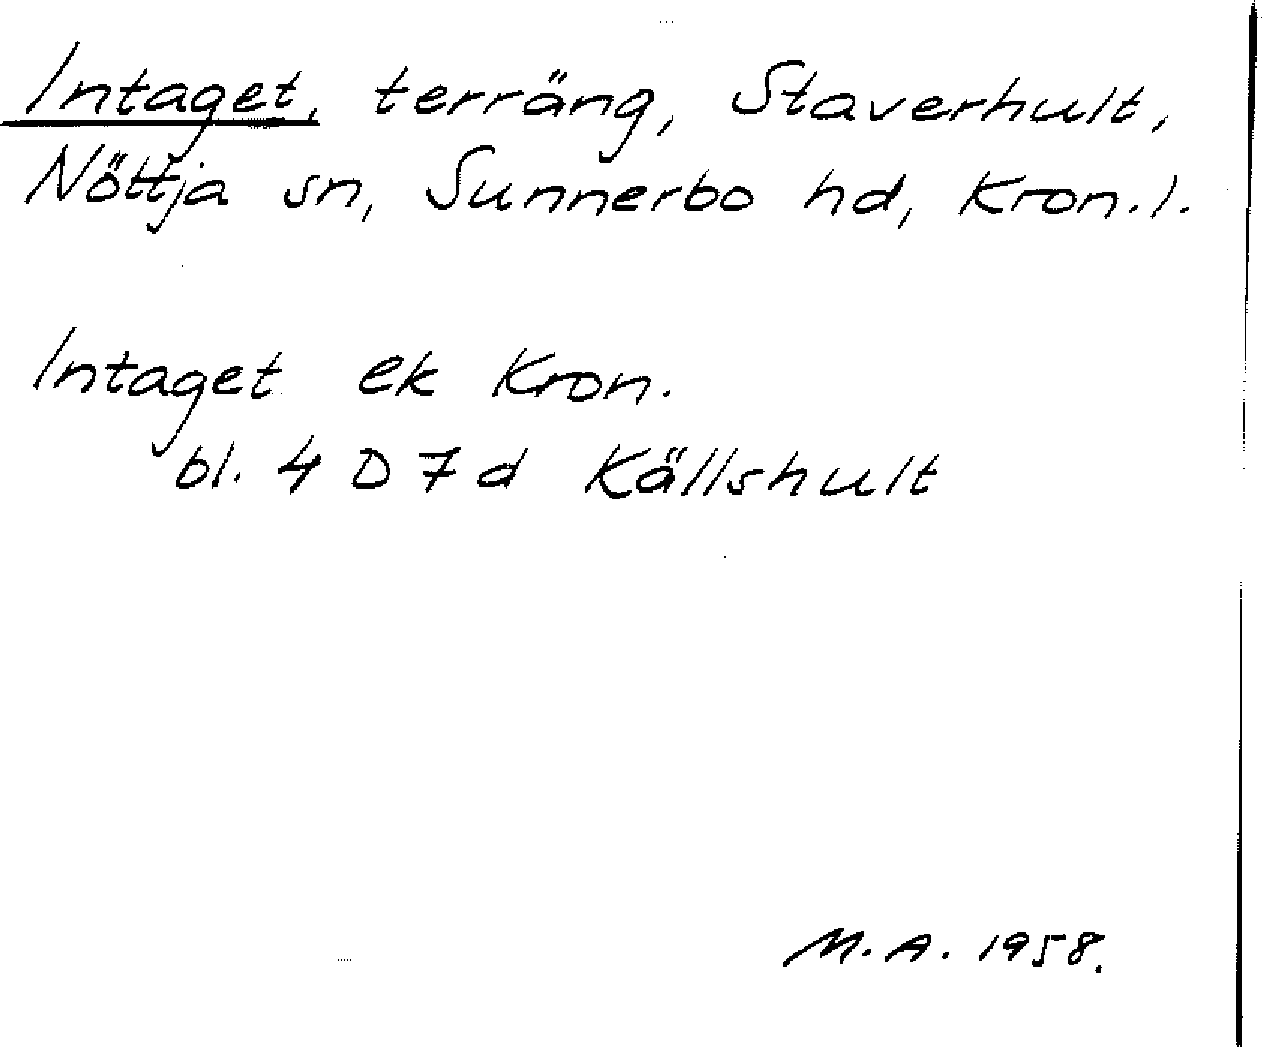 Intaget, terräng, Staverhult,
Nöttja sn, Sunnerbo hd, Kron.l.
Intaget ek Kron.
bl. 4 D 7 d Källshult
M.A. 1958.